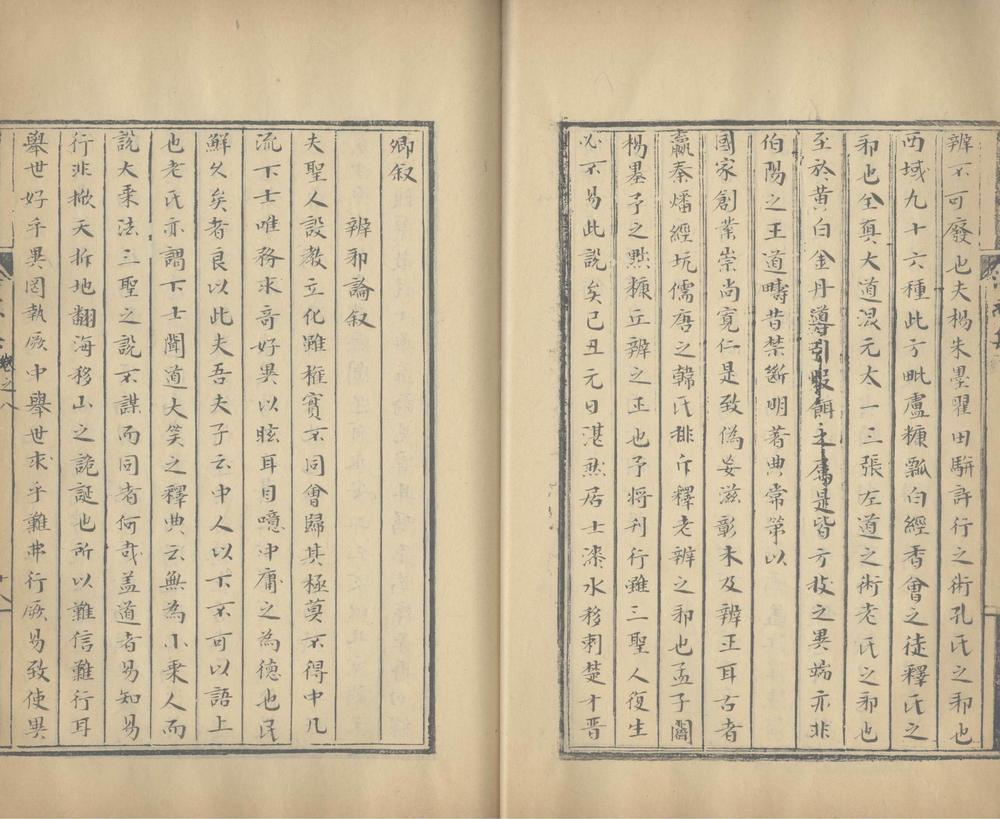 辨不可廢也夫楊朱墨翟田駢許行之術孔氏之邪也
西域九十六種此方毗盧糠瓢白經香會之徒釋氏之
邪也全真大道混元太一三張左道之術老氏之邪也
至於黃白金丹導引服餌之屬是皆方技之異端亦非
伯陽之王道疇昔禁斷明著典常第以
國家創業崇尚寬仁是致偽妄滋彰未及辨正耳古者
嬴秦燔經坑儒唐之韓氏排斥釋老辨之邪也孟子闢
楊墨予之黜糠丘辨之正也予將刊行雖三聖人復生
必不易此說矣己丑元日湛然居士漆水移剌楚才晉
卿叙
辨邪論叙
夫聖人設教立化雖權實不同會歸其極莫不得中凡
流下士唯務求奇好異以眩耳目噫中庸之為德也民
鮮久矣者良以此夫吾夫子云中人以下不可以語上
也老氏亦謂下士聞道大笑之釋典云無為小乘人而
說大乘法三聖之說不謀而同者何哉盖道者易知易
行非掀天拆地翻海移山之詭誕也所以難信難行耳
舉世好乎異罔執厥中舉世求乎難弗行厥易致使異